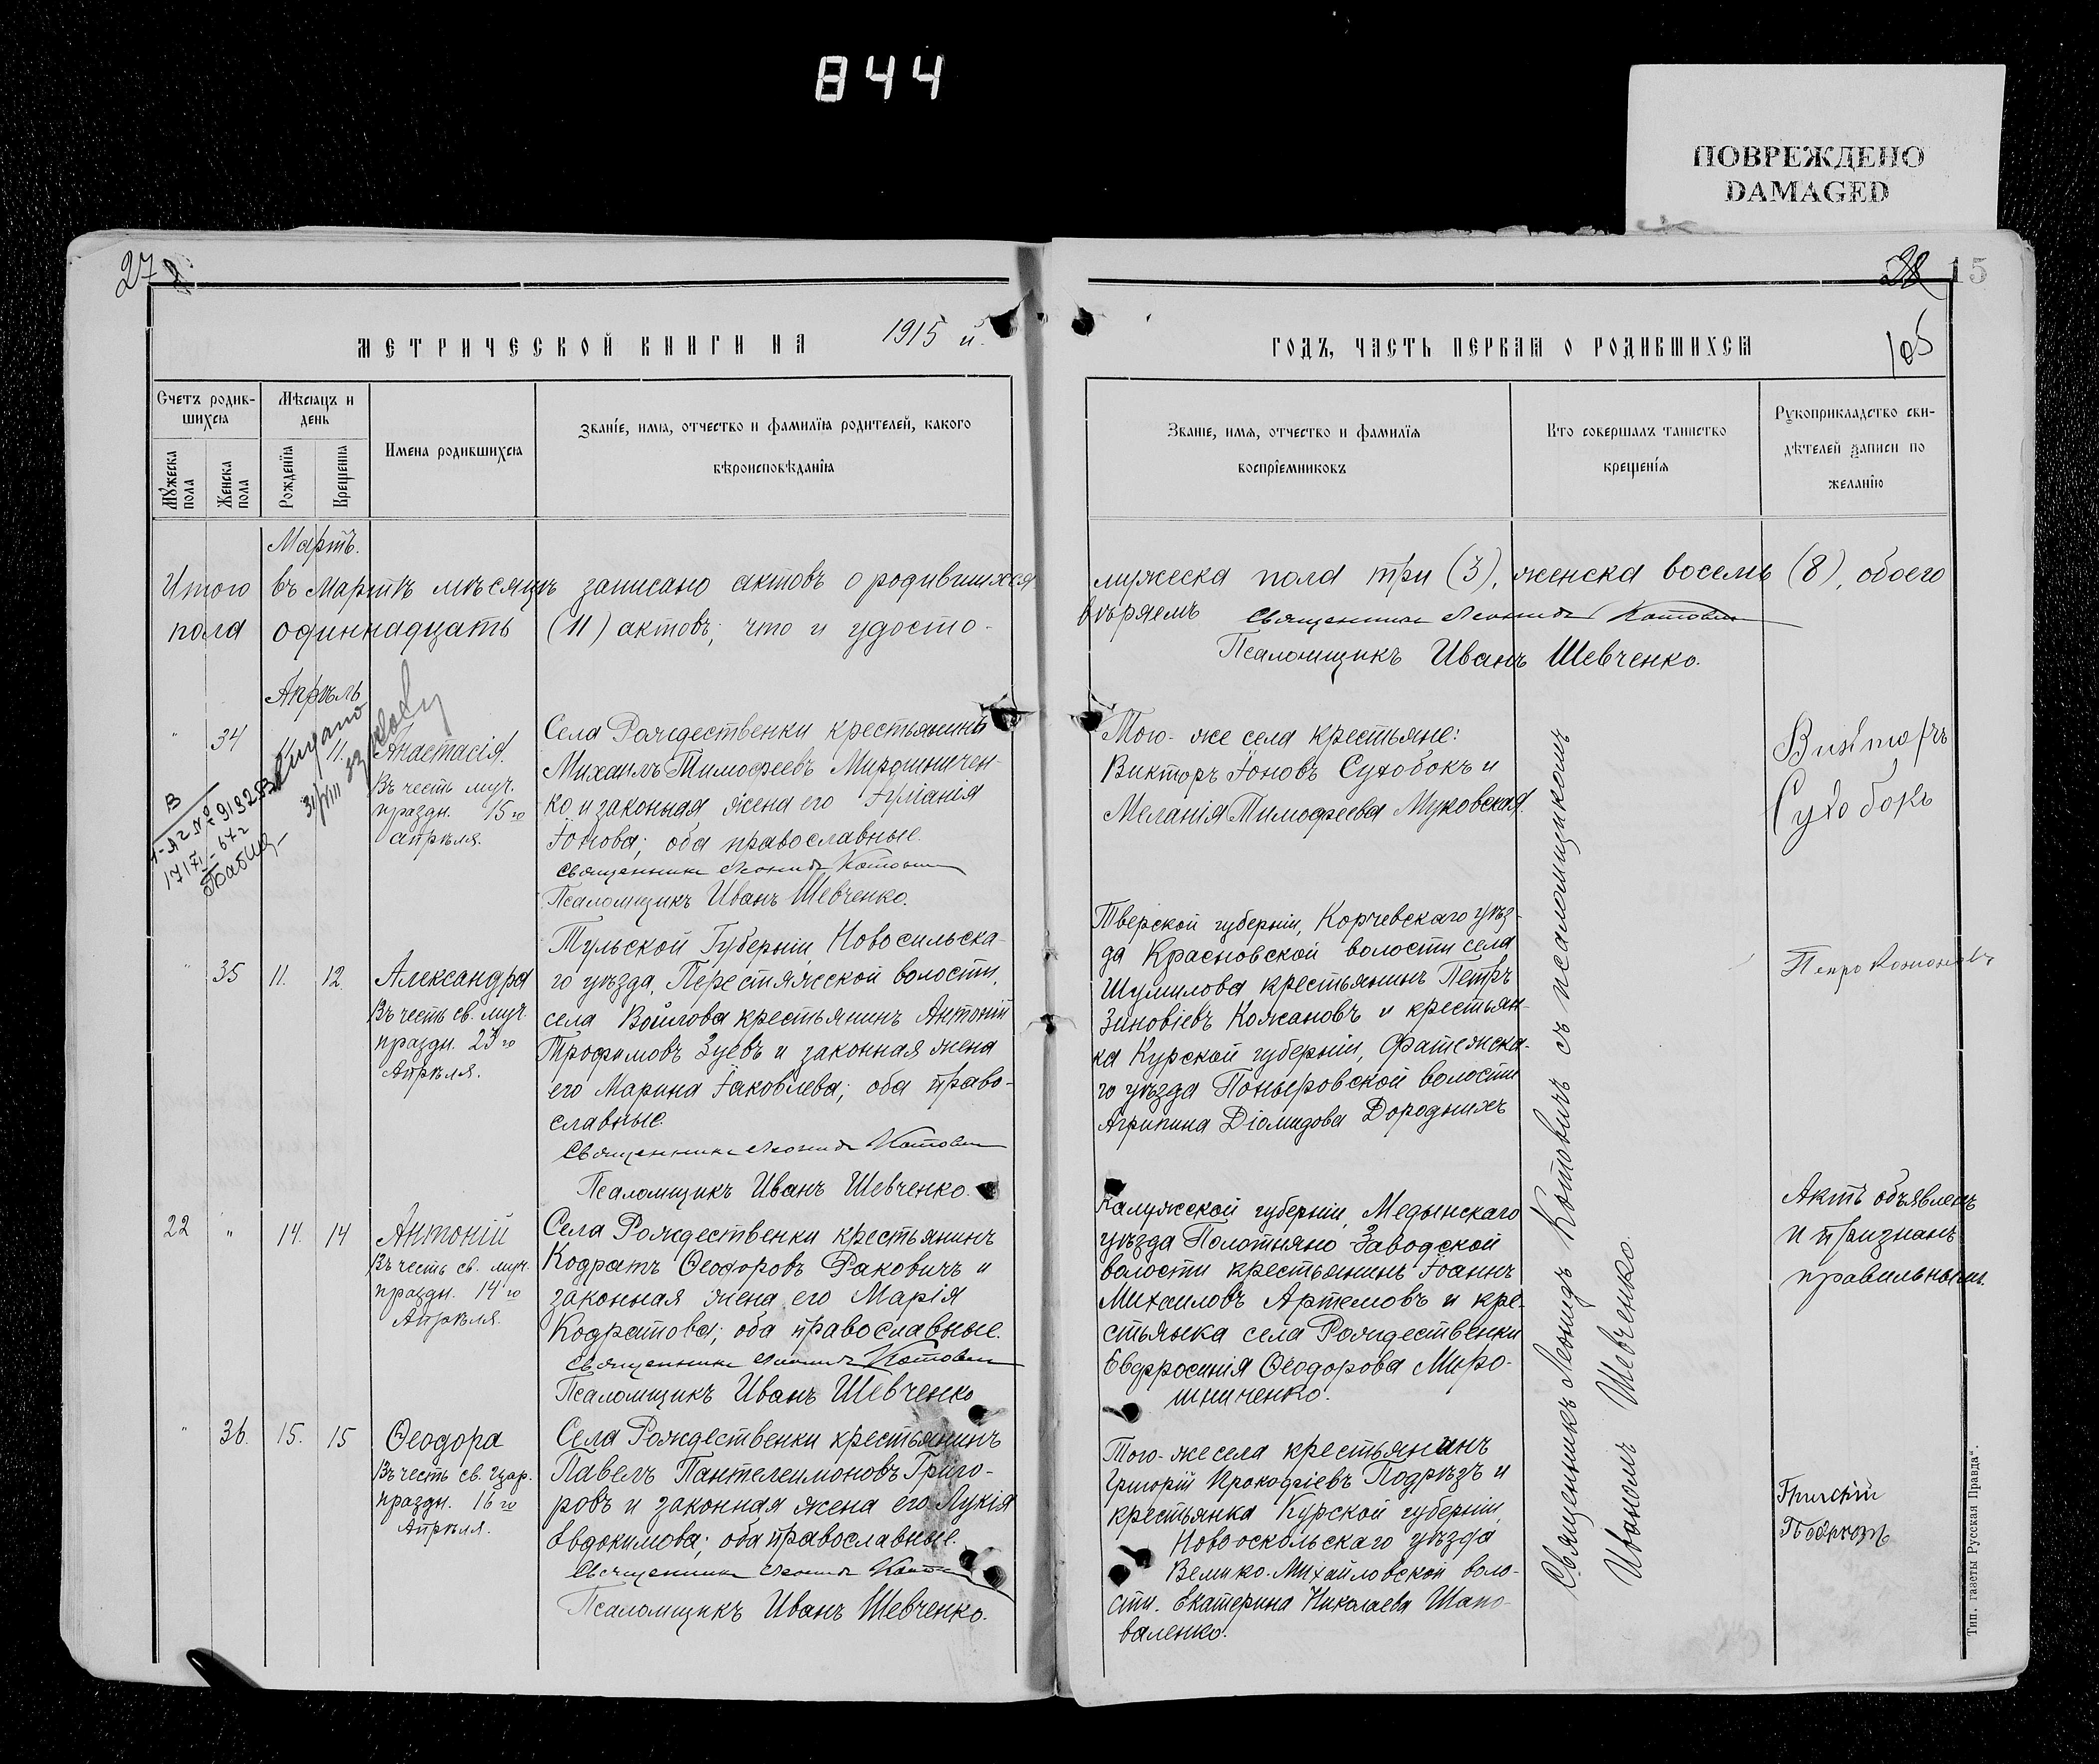 844
ПОВРЕЖДЕНО
DAMAGED
27
28
15
105
МЕТРИЧЕСКОЙ КНИГИ НА 1915 й.
Счетъ родив-
шихся
Мѣсяцъ и
день
Мужеска
пола
Женска
пола
Рожденія
Крещенія
Имена родившихся
Званіе, имя, отчество и фамилія родителей, какого
вѣроисповѣданія
Мартъ.
Итого въ Мартѣ мѣсяцѣ записано актовъ о родившихся
пола одиннадцать (11) актовъ; что и удосто-
Апрѣль
" 34 11. Анастасія.
Въ честь муч.
праздн. 15го
апрѣля.
Села Рождественки крестьянинъ
Михаилъ Тимофеевъ Мирошничен-
ко и законная жена его Іуліанія
Іонова; оба православные.
Священникъ Леонидъ Котовичъ
Псаломщикъ Иванъ Шевченко.
31/VIII
Бабич
" 35 11. 12. Александра
Въ честь св. муч.
праздн. 23го
Апрѣля.
Тульской Губерніи, Новосильска-
го уѣзда, Перестяжской волости,
села Войлова крестьянинъ Антоній
Трофимовъ Зуевъ и законная жена
его Марина Іаковлева; оба право-
славные.
Священникъ Леонидъ Котовичъ
Псаломщикъ Иванъ Шевченко.
22 " 14. 14 Антоній
Въ честь св. муч.
праздн. 14го
Апрѣля.
Села Рождественки крестьянинъ
Кодратъ Ѳеодоровъ Раковичъ и
законная жена его Марія
Кодратова; оба православные.
Священникъ Леонидъ Котовичъ
Псаломщикъ Иванъ Шевченко
" 36. 15. 15 Ѳеодора
Въ честь св. цар.
праздн. 16го
Апрѣля.
Села Рождественки крестьянинъ
Павелъ Пантелеимоновъ Григо-
ровъ и законная жена его Лукія
Евдокимова; оба православные.
Священникъ Леонидъ Котовичъ
Псаломщикъ Иванъ Шевченко.
ГОДЪ, ЧАСТЬ ПЕРВАЯ О РОДИВШИХСЯ
Званіе, имя, отчество и фамилія
воспріемниковъ
Кто совершалъ таинство
крещенія
Рукоприкладство сви-
дѣтелей записи по
желанію
мужеска пола три (3), женска восемь (8), обоего
вѣряемъ Священникъ Леонидъ Котовичъ
Псаломщикъ Иванъ Шевченко.
Того-же села крестьяне:
Викторъ Іоновъ Сухобокъ и
Меланія Тимофеева Муковская.
Сухобокъ
Тверской губерніи, Корчевскаго уѣз-
да Красновской волости села
Шумилова крестьянинъ Петръ
Зиновіевъ Кожановъ и крестьян-
ка Курской губерніи, Фатежска-
го уѣзда Поныровской волости
Агрипина Діомидова Дородныхъ
Калужской губерніи, Медынскаго
уѣзда Полотняно-Заводской
волости крестьянинъ Іоаннъ
Михаиловъ Артемовъ и кре-
стьянка села Рождественки
Евфросинія Ѳеодорова Миро-
шниченко.
Актъ объявленъ
и признанъ
правильнымъ.
Того-же села крестьянинъ
Григорій Прокофіевъ Подрѣзъ и
крестьянка Курской губерніи,
Новооскольскаго уѣзда
Велико-Михайловской воло-
сти. Екатерина Николаева Шапо-
валенко.
Священникъ Леонидъ Котовичъ съ псаломщикомъ
Иваномъ Шевченко.
Тип. газеты Русская Правда".